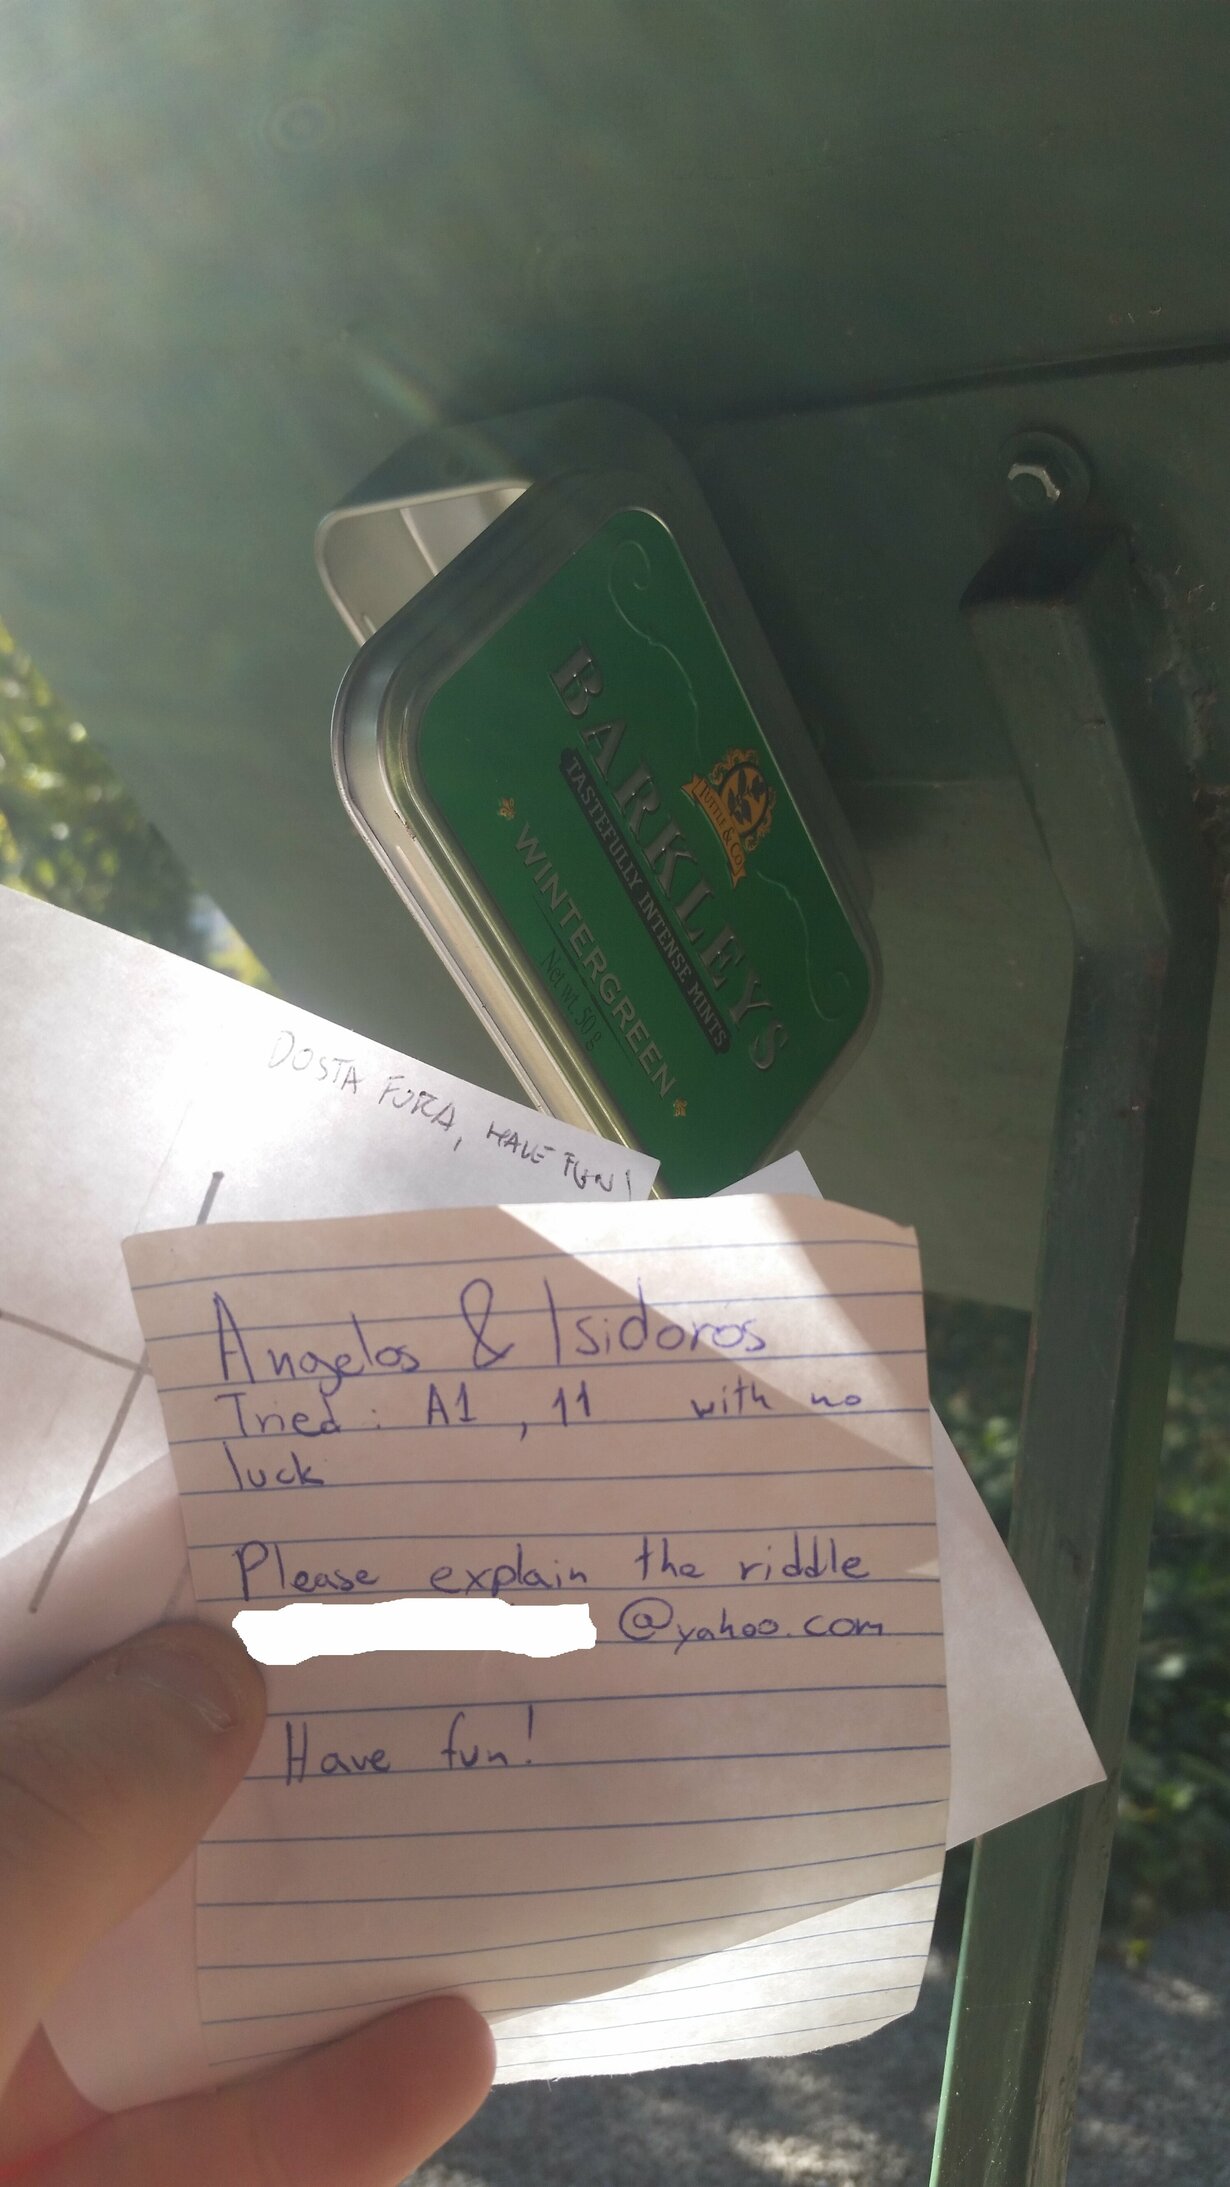 TUTTLE & CO
BARKLEYS
TASTEFULLY INTENSE MINTS
WINTERGREEN
Net wt. 50 g
DOSTA FORA, HAVE FUN!
Angelos & Isidoros
Tried: A1, 11 with no
luck
Please explain the riddle
@yahoo.com
Have fun!